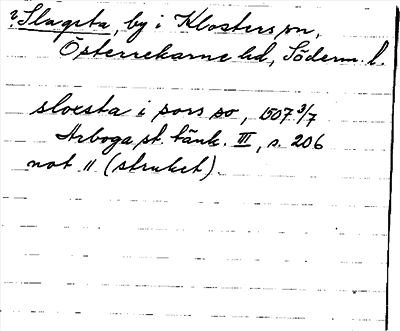 ?Slagsta, by i Klosters sn,
Österrekarne hd, Söderm. l.
sloxsta i sors so, 1507 3/7
Arboga st. tänk. III, s. 206
not 11 (struket).